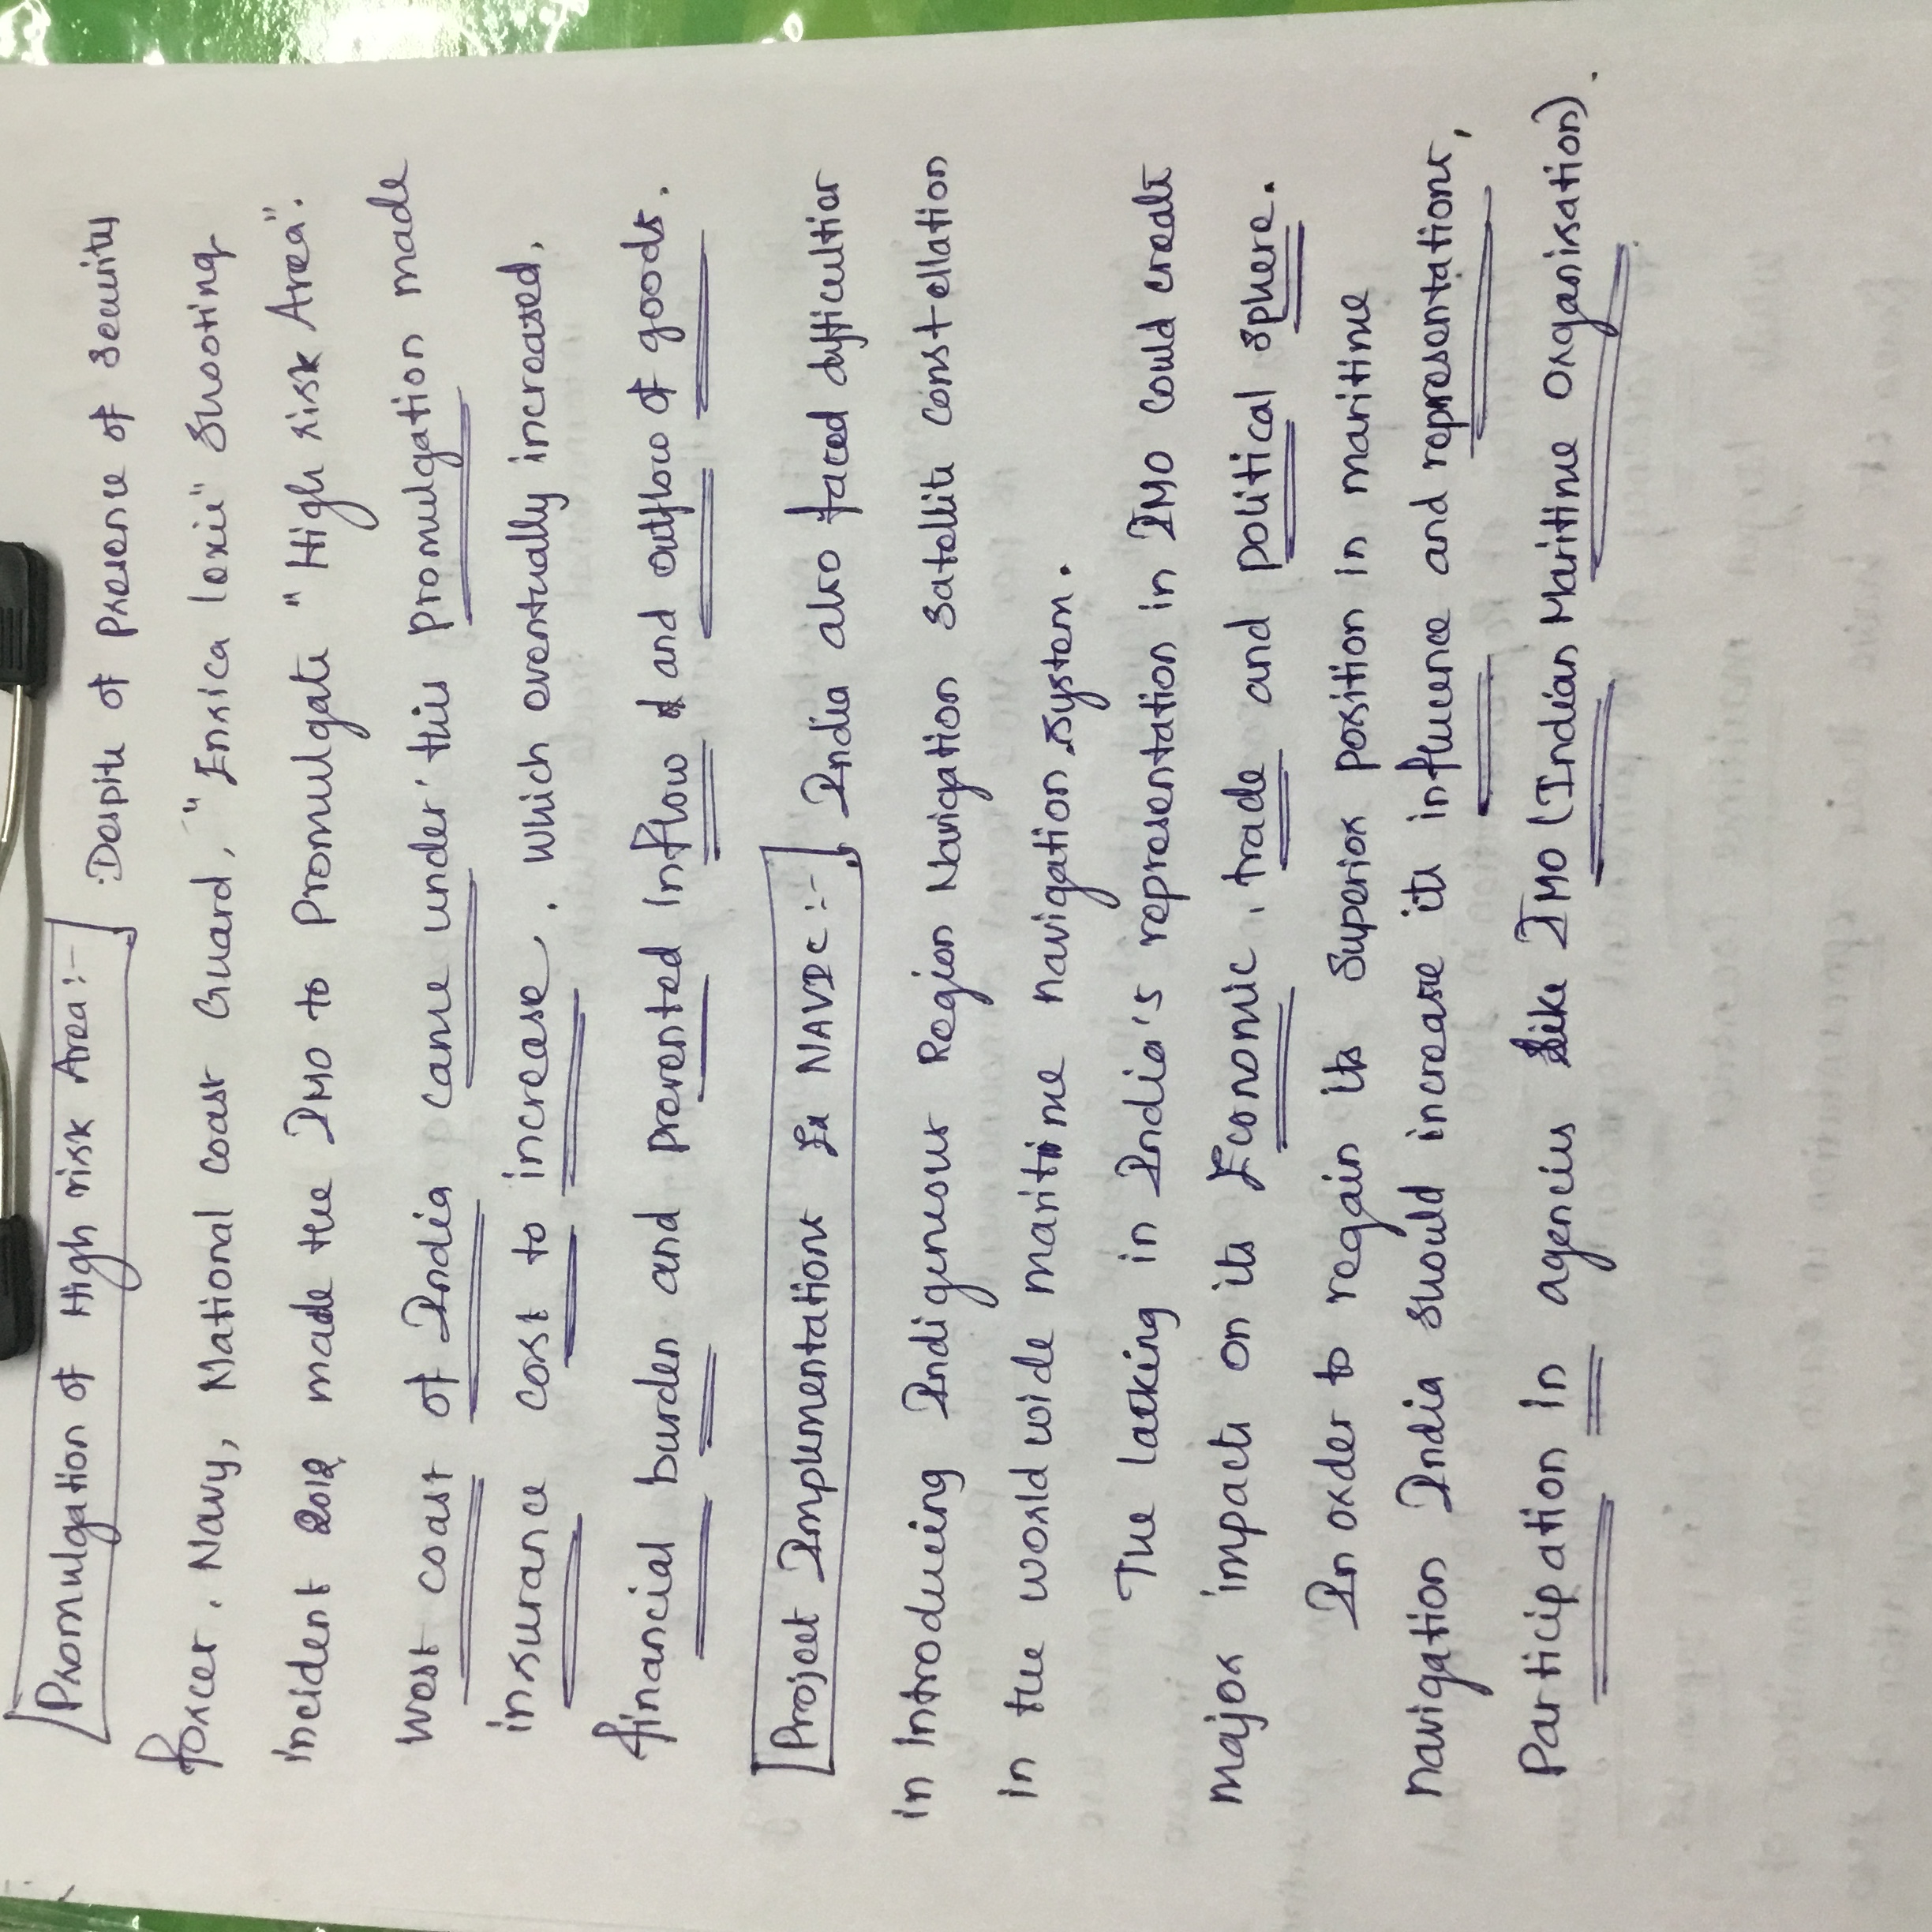 Promulgation of High risk Area:- Despite of presence of security
forces, Navy, National coast Guard, "Enrica lexie" shooting
incident 2012 made the IMO to promulgate "High risk Area".
west coast of India came under this promulgation made
insurance cost to increase, which eventually increased,
financial burden and prevented inflow and outflow of goods.
Project Implementations NAVIC:- India also faced difficulties
in Introducing Indigenous Region Navigation Satellite constellation
in the world wide maritime navigation system.
The lacking in India's representation in IMO could create
major impacts on its Economic, trade and political sphere.
In order to regain its superior position in maritime
navigation India should increase its influence and representations,
Participation in agencies like IMO (Indian Maritime Organisation).